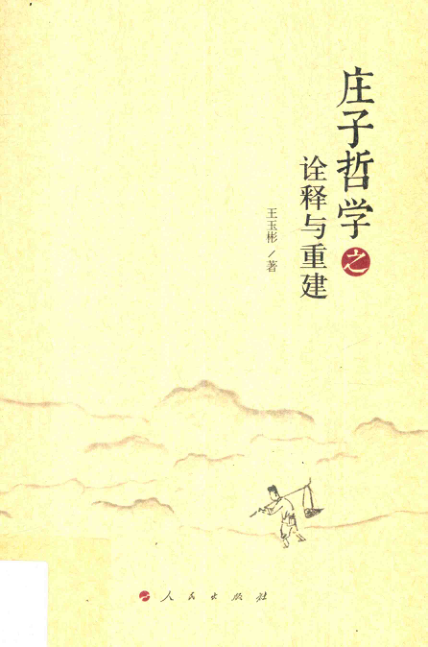 庄子哲学之
诠释与重建
王玉彬／著
人民出版社